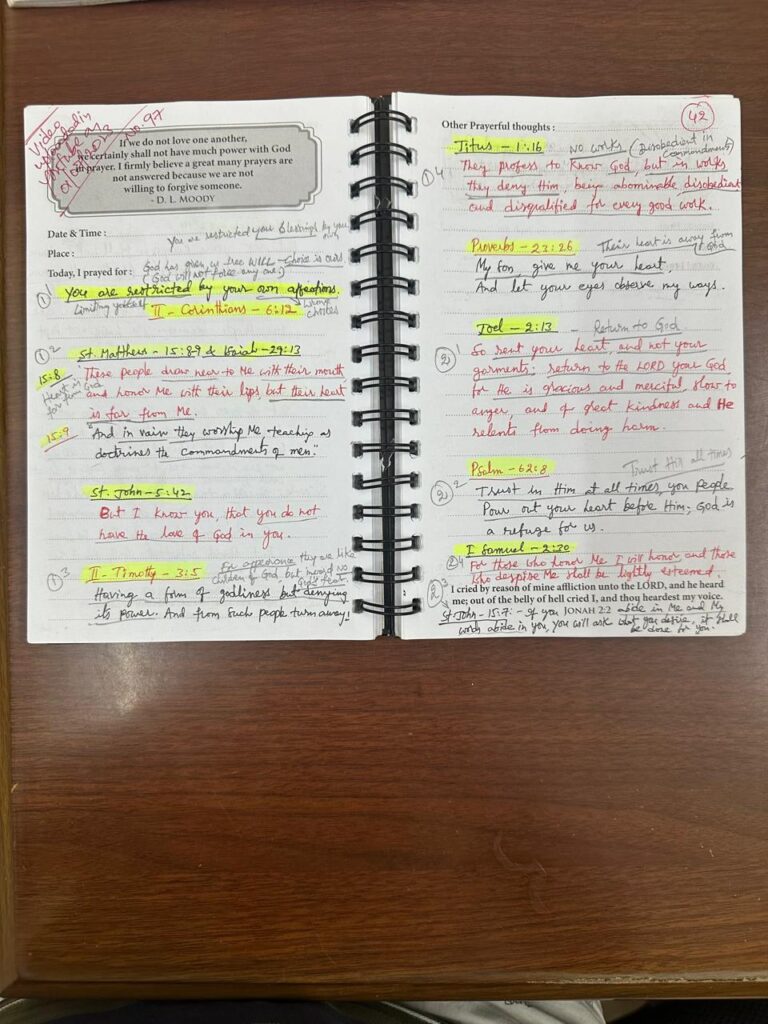 Video
uploaded in
YouTube on
No. 97
If we do not love one another,
we certainly shall not have much power with God
in prayer. I firmly believe a great many prayers are
not answered because we are not
willing to forgive someone.
- D. L. MOODY
Date & Time :
You are restricted your Blessings by your own
Place :
Today, I prayed for : God has given us free WILL - Choice is ours
(God will not force any one)
1) 1 You are restricted by your own affections.
Limiting yourself
II - Corinthians - 6:12
1) 2 St. Matthew - 15:8-9 & Isaiah - 29:13
15:8 "These people draw near to Me with their mouth
Heart is far from God
and honor Me with their lips, but their heart
is far from Me.
15:9 "And in vain they worship Me, teaching as
doctrines the commandments of men."
St. John - 5:42
But I know you, that you do not
have the love of God in you.
For appearance they are like
children of God, but inward no
God's fear.
1) 3 II - Timothy - 3:5
Having a form of godliness but denying
its power. And from such people turn away!
42
Other Prayerful thoughts :
Titus - 1:16 NO works (Disobedient in
Commandments)
1) 4 They profess to know God, but in works
they deny Him, being abominable, disobedient
and disqualified for every good work.
Proverbs - 23:26 Their heart is away from
God
My son, give me your heart,
And let your eyes observe my ways.
Joel - 2:13 - Return to God
2) 1 So rent your heart, and not your
garments; return to the LORD your God
for He is gracious and merciful, slow to
anger, and of great kindness and He
relents from doing harm.
Psalm - 62:8 Trust Him all times
2) 2 Trust in Him at all times, you people
Pour out your heart before Him; God is
a refuge for us.
I Samuel - 2:30
2) 4 For those who honor Me I will honor and those
who despise Me shall be lightly esteemed.
2) 3 I cried by reason of mine affliction unto the LORD, and he heard
me; out of the belly of hell cried I, and thou heardest my voice.
JONAH 2:2
St. John - 15:7:- If you abide in Me and My
words abide in you, you will ask what you desire, it shall
be done for you.